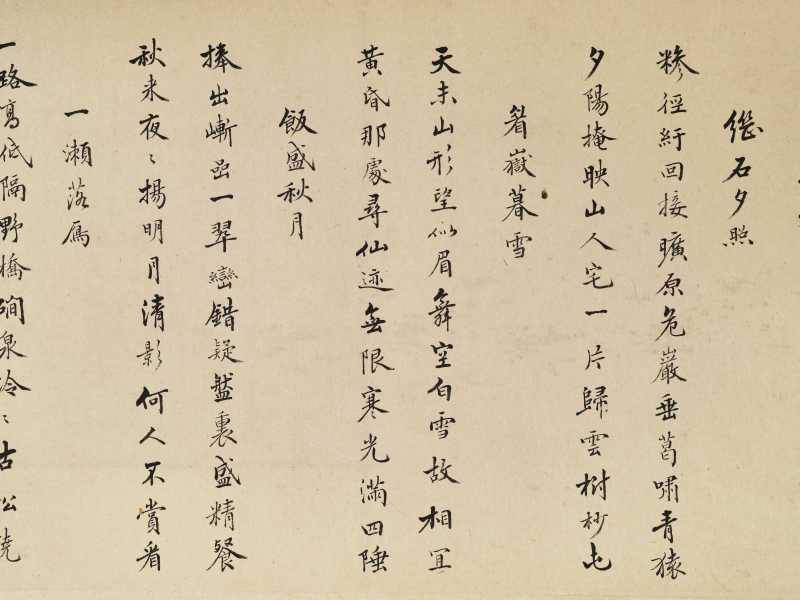 繼石夕照
糝徑紆回接曠原危巖垂葛嘯青猿
夕陽掩映山人宅一片歸雲樹杪屯
着嶽暮雪
天末山形望似眉舞空白雪故相宜
黃昏那處尋仙迹無限寒光滿四陲
飯盛秋月
捧出嶄嵒一翠巒錯疑盤裏盛精餐
秋来夜〻揚明月清影何人不賞看
一瀬落鴈
一路高低隔野橋澗泉冷〻古松